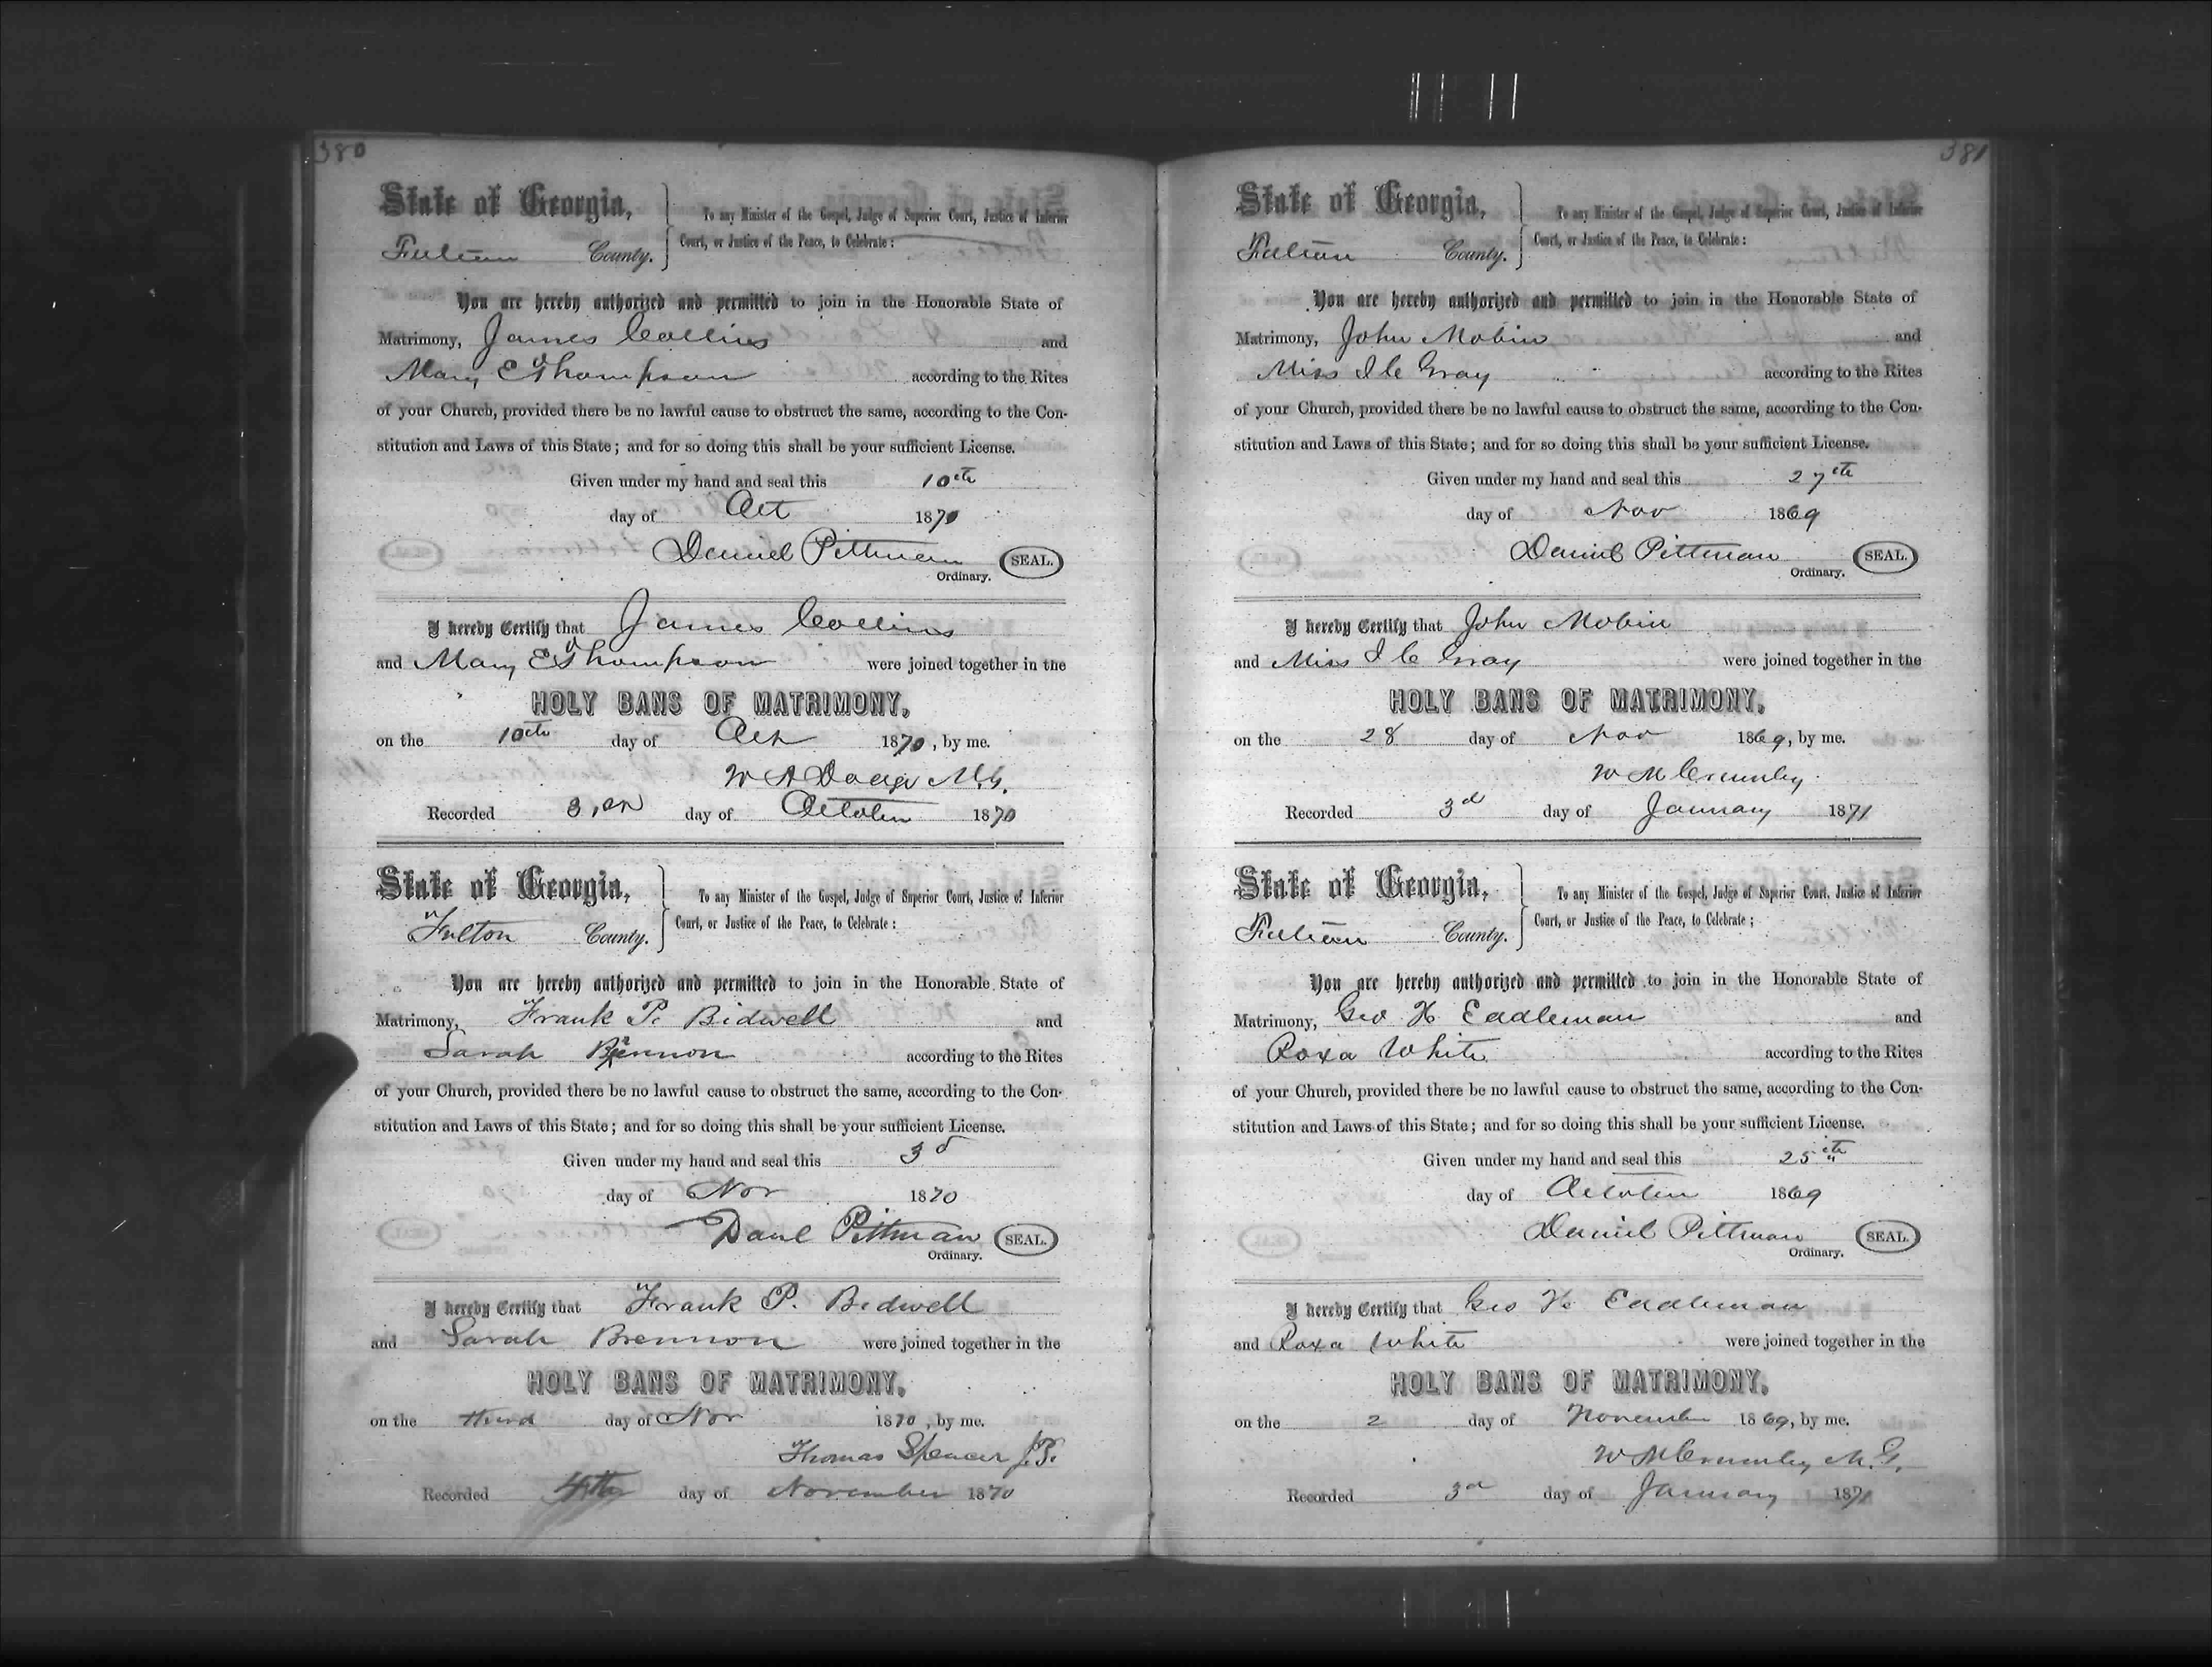 380
State of Georgia, To any Minister of the Gospel, Judge of Superior Court, Justice of Inferior
Fulton County. Court, or Justice of the Peace, to Celebrate :
You are hereby authorized and permitted to join in the Honorable State of
Matrimony, James Collins and
Mary E Thompson according to the Rites
of your Church, provided there be no lawful cause to obstruct the same, according to the Con-
stitution and Laws of this State; and for so doing this shall be your sufficient License.
Given under my hand and seal this 10th
day of Oct 1870
Daniel Pittman SEAL.
Ordinary.
I hereby Certify that James Collins
and Mary E Thompson were joined together in the
HOLY BANS OF MATRIMONY,
on the 10th day of Oct 1870, by me.
W A Dodge M.G.
Recorded day of October 1870
State of Georgia, To any Minister of the Gospel, Judge of Superior Court, Justice of Inferior
Fulton County. Court, or Justice of the Peace, to Celebrate :
You are hereby authorized and permitted to join in the Honorable State of
Matrimony, Frank P. Bidwell and
Sarah Brennon according to the Rites
of your Church, provided there be no lawful cause to obstruct the same, according to the Con-
stitution and Laws of this State; and for so doing this shall be your sufficient License.
Given under my hand and seal this 3d
day of Nov 1870
Danl Pittman SEAL.
Ordinary.
I hereby Certify that Frank P. Bidwell
and Sarah Brennon were joined together in the
HOLY BANS OF MATRIMONY,
on the third day of Nov 1870, by me.
Thomas Spencer J.P.
Recorded 4th day of November 1870
381
State of Georgia, To any Minister of the Gospel, Judge of Superior Court, Justice of Inferior
Fulton County. Court, or Justice of the Peace, to Celebrate :
You are hereby authorized and permitted to join in the Honorable State of
Matrimony, John Mobin and
Miss I C Gray according to the Rites
of your Church, provided there be no lawful cause to obstruct the same, according to the Con-
stitution and Laws of this State; and for so doing this shall be your sufficient License.
Given under my hand and seal this 27th
day of Nov 1869
Daniel Pittman SEAL.
Ordinary.
I hereby Certify that John Mobin
and Miss I C Gray were joined together in the
HOLY BANS OF MATRIMONY,
on the 28 day of Nov 1869, by me.
W M Crumley
Recorded 3d day of January 1871
State of Georgia, To any Minister of the Gospel, Judge of Superior Court, Justice of Inferior
Fulton County. Court, or Justice of the Peace, to Celebrate ;
You are hereby authorized and permitted to join in the Honorable State of
Matrimony, Geo H Eddleman and
Roxa White according to the Rites
of your Church, provided there be no lawful cause to obstruct the same, according to the Con-
stitution and Laws of this State; and for so doing this shall be your sufficient License.
Given under my hand and seal this 25th
day of October 1869
Daniel Pittman SEAL.
Ordinary.
I hereby Certify that Geo H Eddleman
and Roxa White were joined together in the
HOLY BANS OF MATRIMONY,
on the 2 day of November 1869, by me.
W M Crumley M.G.
Recorded 3d day of January 1871